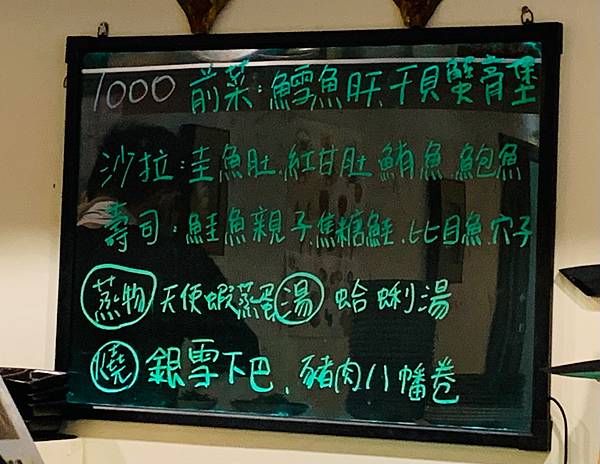 1000 前菜:鱈魚肝、干貝蟹膏堡
沙拉:圭魚肚、紅甘肚、鮪魚、鮑魚
壽司:鮭魚親子、焦糖鮭、比目魚、穴子
蒸物 天使蝦蒸蛋 湯 蛤蜊湯
燒 銀雪下巴、豬肉八幡卷